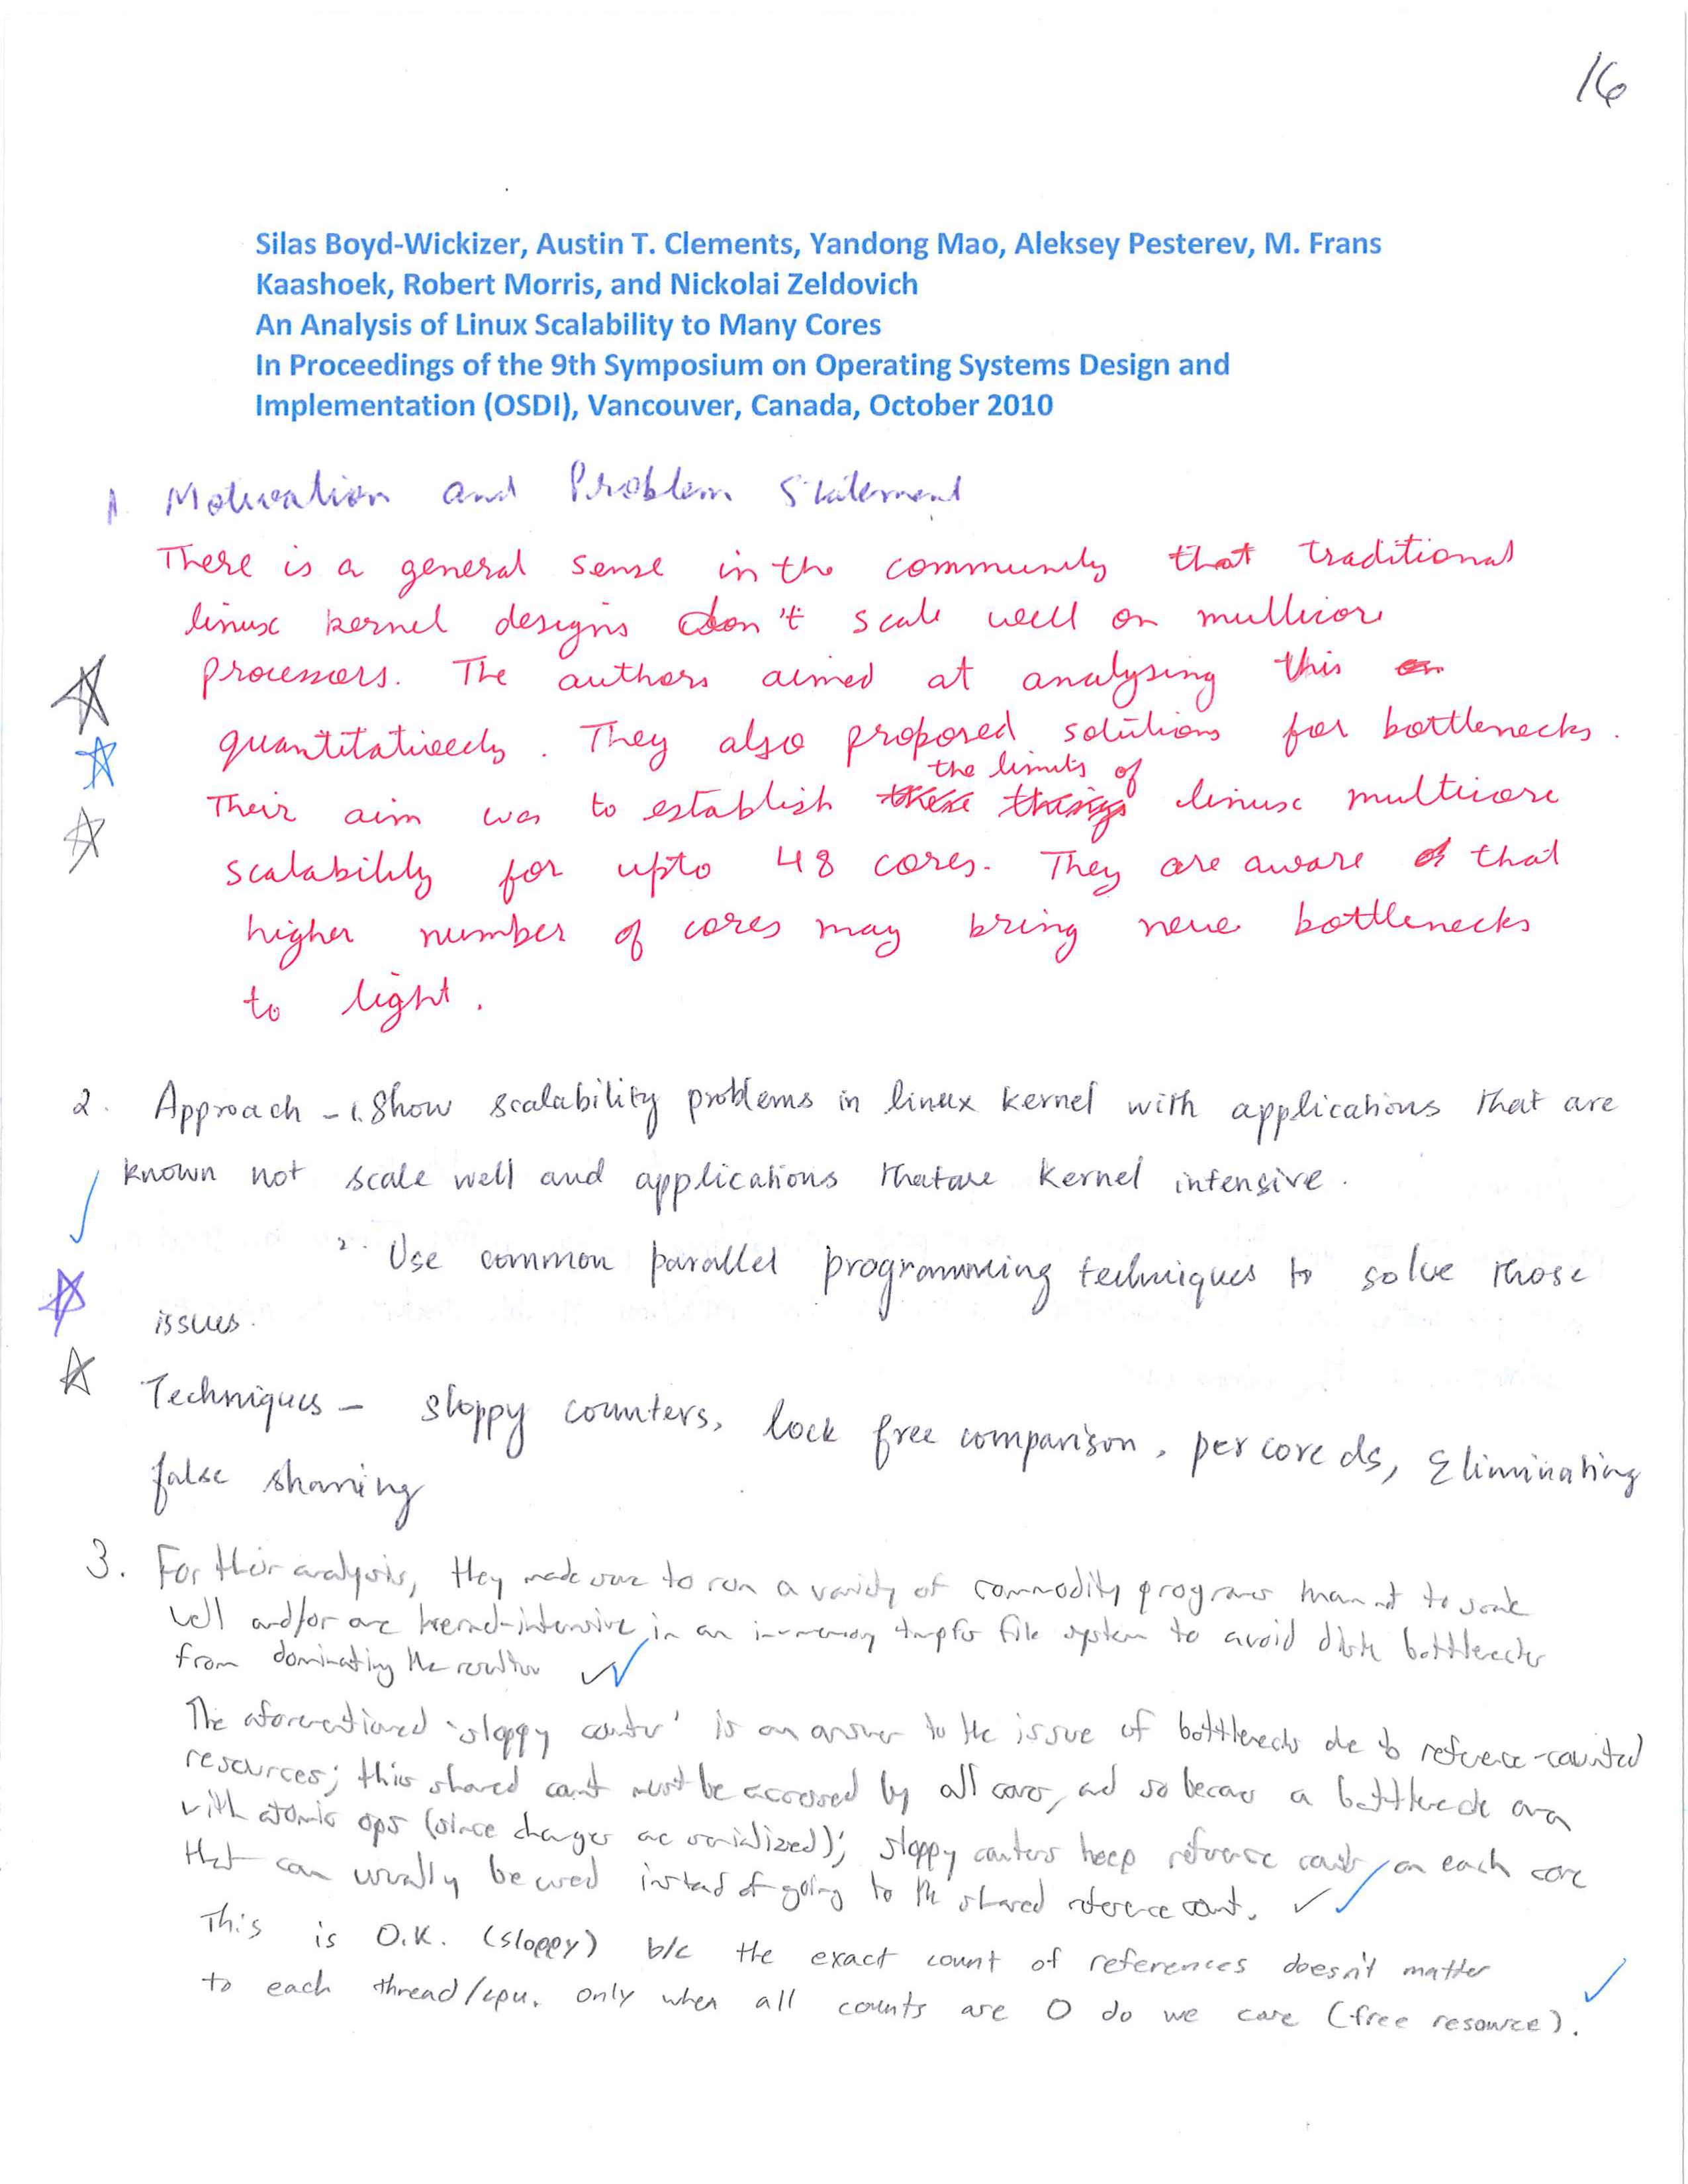 16
Silas Boyd-Wickizer, Austin T. Clements, Yandong Mao, Aleksey Pesterev, M. Frans
Kaashoek, Robert Morris, and Nickolai Zeldovich
An Analysis of Linux Scalability to Many Cores
In Proceedings of the 9th Symposium on Operating Systems Design and
Implementation (OSDI), Vancouver, Canada, October 2010
1. Motivation and Problem Statement
There is a general sense in the community that traditional
linux kernel designs don't scale well on multicore
processors. The authors aimed at analysing this
quantitatively. They also proposed solutions for bottlenecks.
the limits of
Their aim was to establish these things linux multicore
scalability for upto 48 cores. They are aware of that
higher number of cores may bring new bottlenecks
to light.
2. Approach - 1. Show scalability problems in linux kernel with applications that are
known not scale well and applications that are kernel intensive.
2. Use common parallel programming techniques to solve those
issues.
Techniques - sloppy counters, lock free comparison, per core ds, Eliminating
false sharing
3. For their analysis, they made sure to run a variety of commodity programs known not to scale
well and/or are kernel-intensive, in an in-memory tmpfs file system to avoid disk bottlenecks
from dominating the results
The aforementioned 'sloppy counter' is an answer to the issue of bottlenecks due to reference-counted
resources; this shared count must be accessed by all cores, and so becomes a bottleneck even
with atomic ops (since changes are serialized); sloppy counters keep reference counts on each core
that can usually be used instead of going to the shared reference count.
This is O.K. (sloppy) b/c the exact count of references doesn't matter
to each thread/cpu. only when all counts are 0 do we care (free resource).